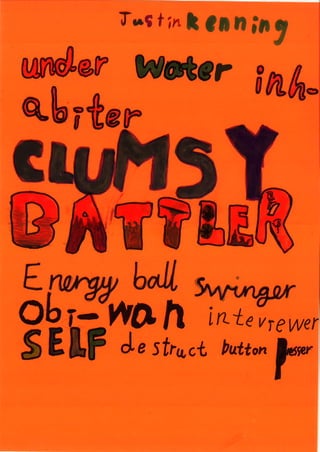 Justin kenning
under water inh-
abiter
CLUMSY
BATTLER
Energy ball swinger
Obi-wan interviewer
SELF destruct button presser